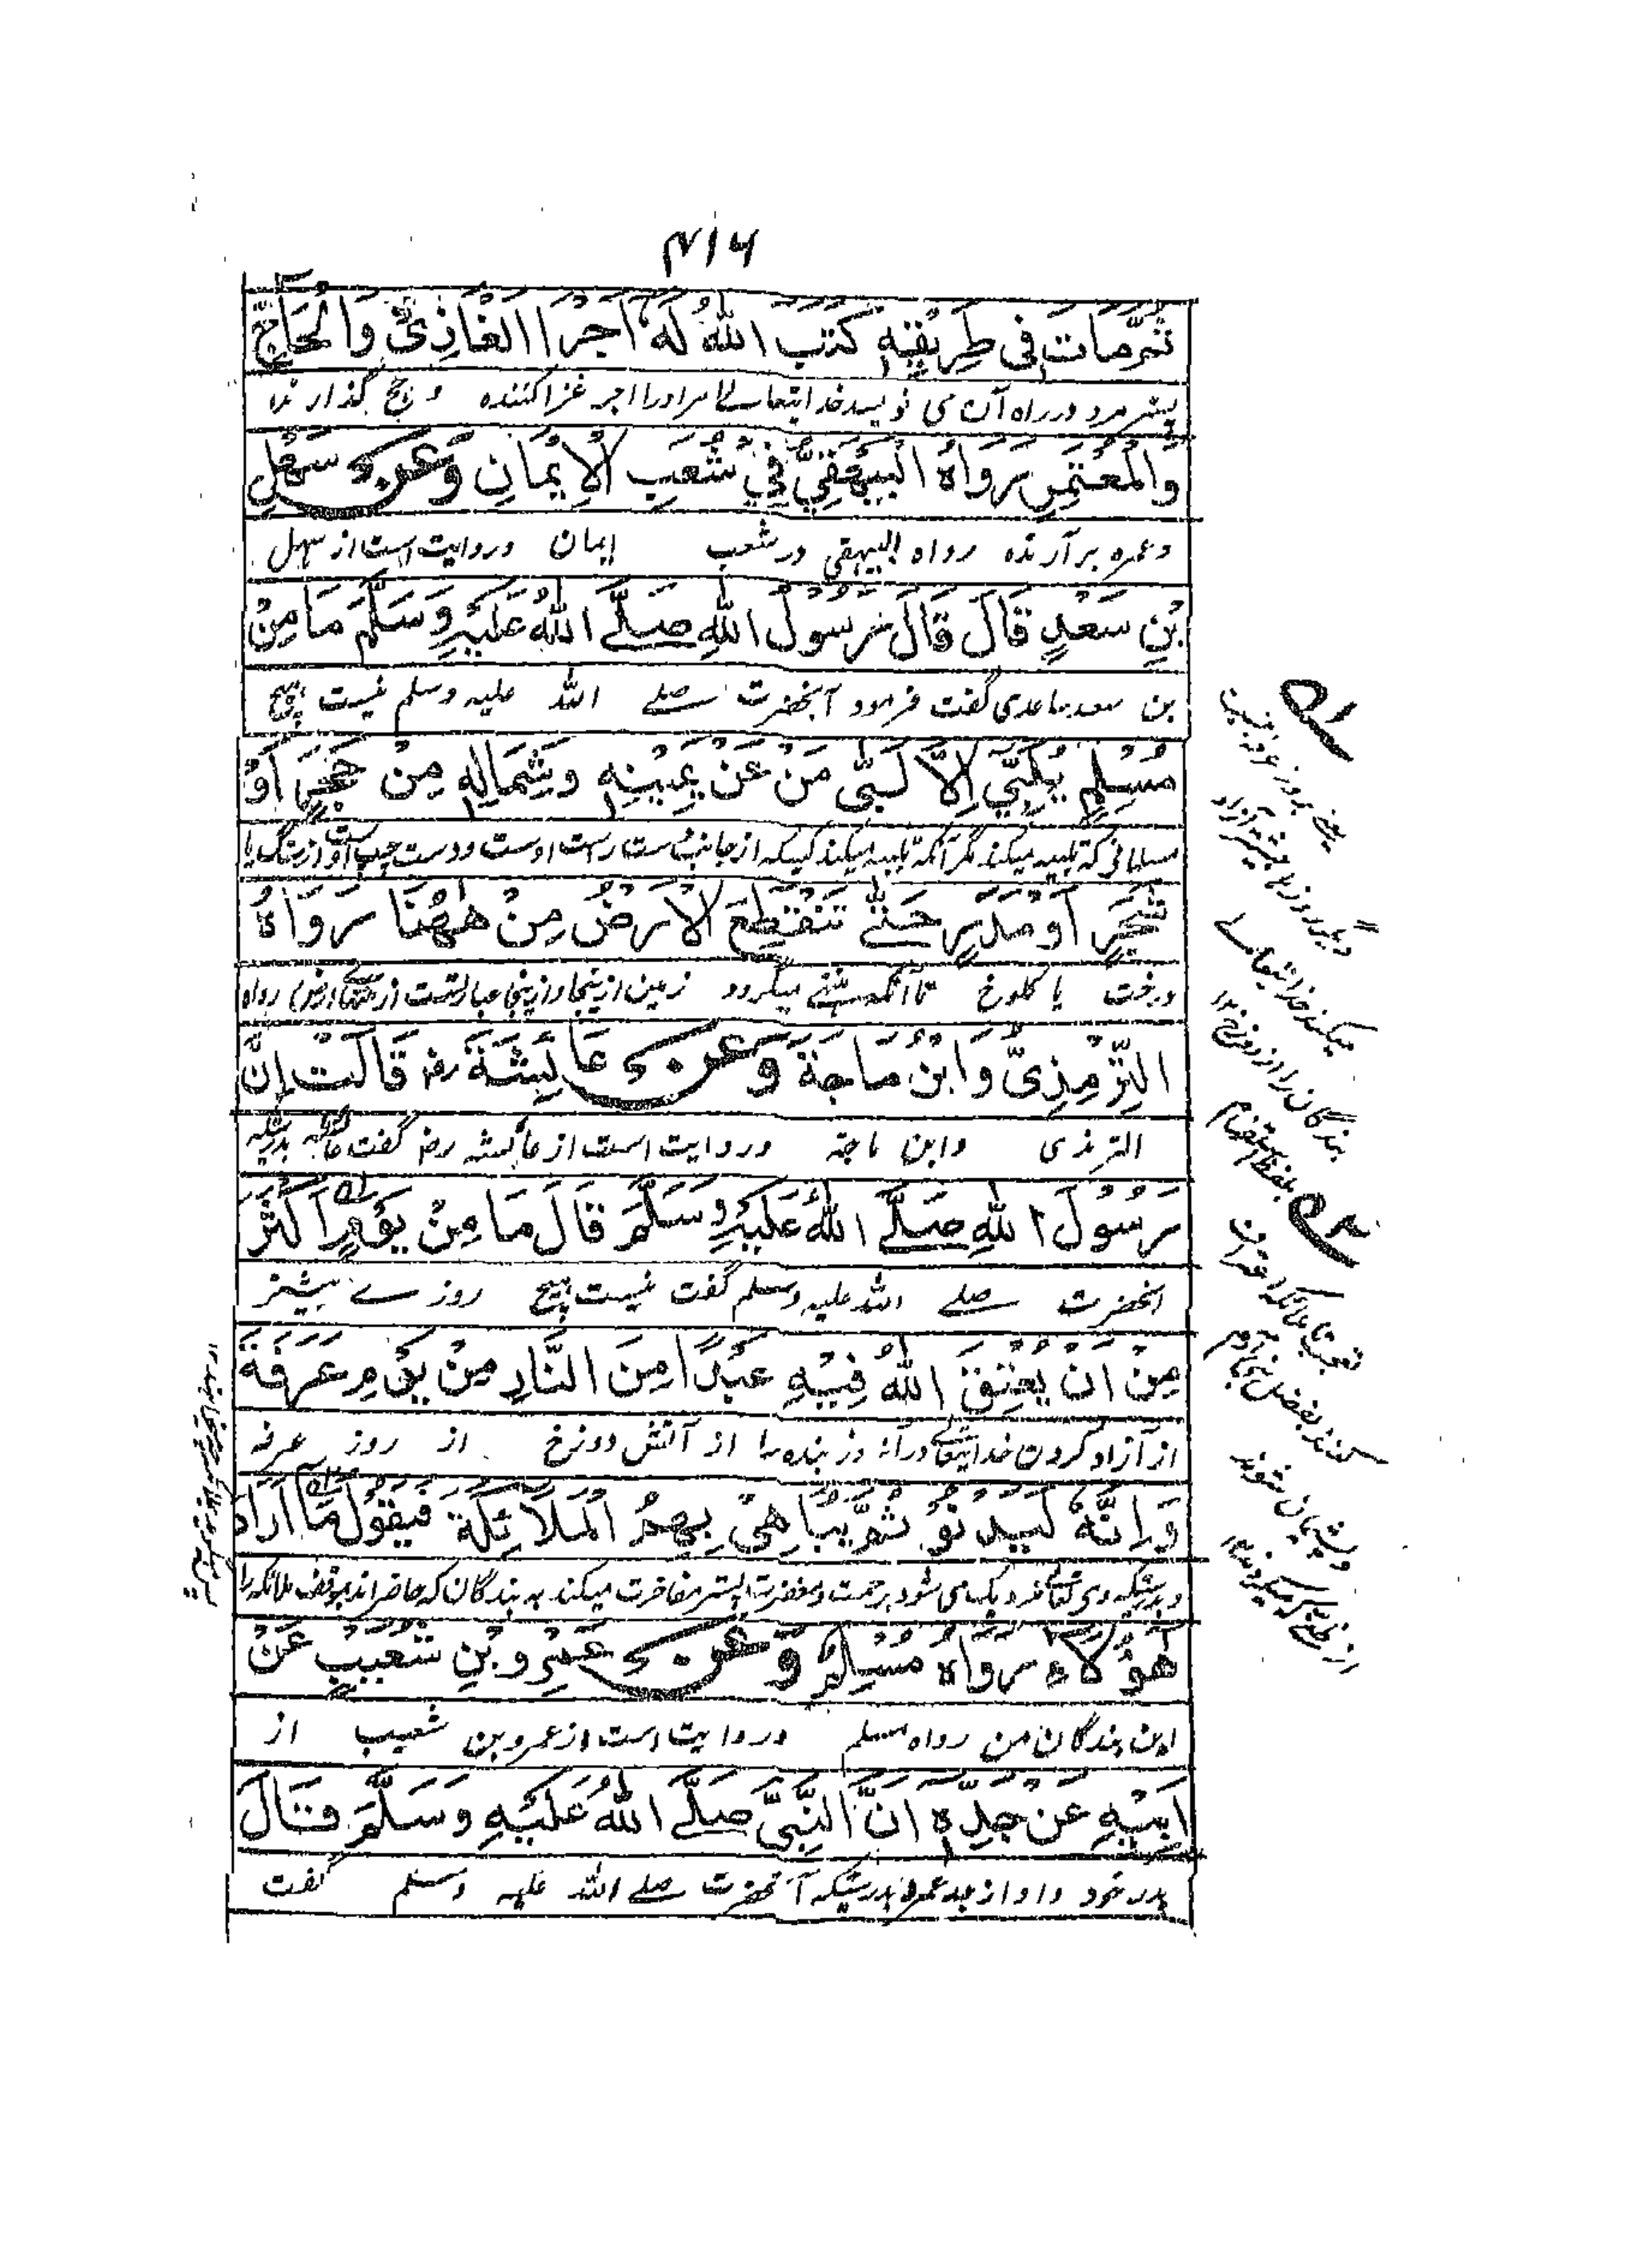 ۴۱۶
ثُمَّ مَاتَ فِي طَرِيْقِهٖ كَتَبَ اللهُ لَهٗ اَجْرَا الْغَازِیْ وَالْحَاجِّ
پستر مرد در راه آن می نویسد خدایتعالے مر او را اجر غزا کننده و حج گذارنده
وَالْمُعْتَمِرِ رَوَاهُ الْبَيْهَقِيُّ فِيْ شُعَبِ الْاِيْمَانِ وَعَنْ سَهْلِ
و عمره بر آرنده رواه البیهقی در شعب ایمان و روایت است از سهل
بْنِ سَعْدٍ قَالَ قَالَ رَسُوْلُ اللهِ صَلَّے اللهُ عَلَيْهِ وَسَلَّمَ مَا مِنْ
بن سعد ساعدی گفت فرمود آنحضرت صلے الله علیه وسلم نیست هیچ
مُسْلِمٍ يُلَبِّيْ اِلَّا لَبّٰى مَنْ عَنْ يَمِيْنِهٖ وَشِمَالِهٖ مِنْ حَجَرٍ اَوْ
مسلمانی که تلبیه میکند مگر آنکه تلبیه میکند کسیکه از جانب دست راست اوست و دست چپ اوست از سنگ یا
شَجَرٍ اَوْ مَدَرٍ حَتّٰے تَنْقَطِعَ الْاَرْضُ مِنْ هٰهُنَا رَوَاهُ
درخت یا کلوخ تا آنکه منتهے میگردد زمین از ینجا و از ینجا عبارتست از رواه
التِّرْمِذِيُّ وَابْنُ مَاجَةَ وَعَنْ عَائِشَةَ رض قَالَتْ اِنَّ
الترمذی وابن ماجة و روایت است از عائشه رض گفت عائشه بدرستیکه
رَسُوْلَ اللهِ صَلَّے اللهُ عَلَيْهِ وَسَلَّمَ قَالَ مَا مِنْ يَوْمٍ اَكْثَرَ
آنحضرت صلے الله علیه وسلم گفت نیست هیچ روزے بیشتر
مِنْ اَنْ يُعْتِقَ اللهُ فِيْهِ عَبْدًا مِنَ النَّارِ مِنْ يَوْمِ عَرَفَةَ
از آزاد کردن خدایتعالے در آن روز بنده را از آتش دوزخ از روز عرفه
وَاِنَّهٗ لَيَدْنُوْ ثُمَّ يُبَاهِيْ بِهِمُ الْمَلَائِكَةَ فَيَقُوْلُ مَا اَرَادَ
و بدرستیکه وی تعالے نزدیک می شود برحمت و مغفرت پستر مفاخرت میکند به بندگان که حاضر اند بموقف ملائکه را
هٰؤُلَاءِ رَوَاهُ مُسْلِمٌ وَعَنْ عَمْرِو بْنِ شُعَيْبٍ عَنْ
این بندگان من رواه مسلم و روایت است از عمرو بن شعیب از
اَبِيْهِ عَنْ جَدِّهٖ اَنَّ النَّبِيَّ صَلَّے اللهُ عَلَيْهِ وَسَلَّمَ قَالَ
پدر خود و او از جد عمرو بدرستیکه آنحضرت صلے الله علیه وسلم گفت
یعنے بروز عرفه
دیگر روزها بیشتر آزاد
میکند خدایتعالے
بندگان را از دوزخ ۱۲